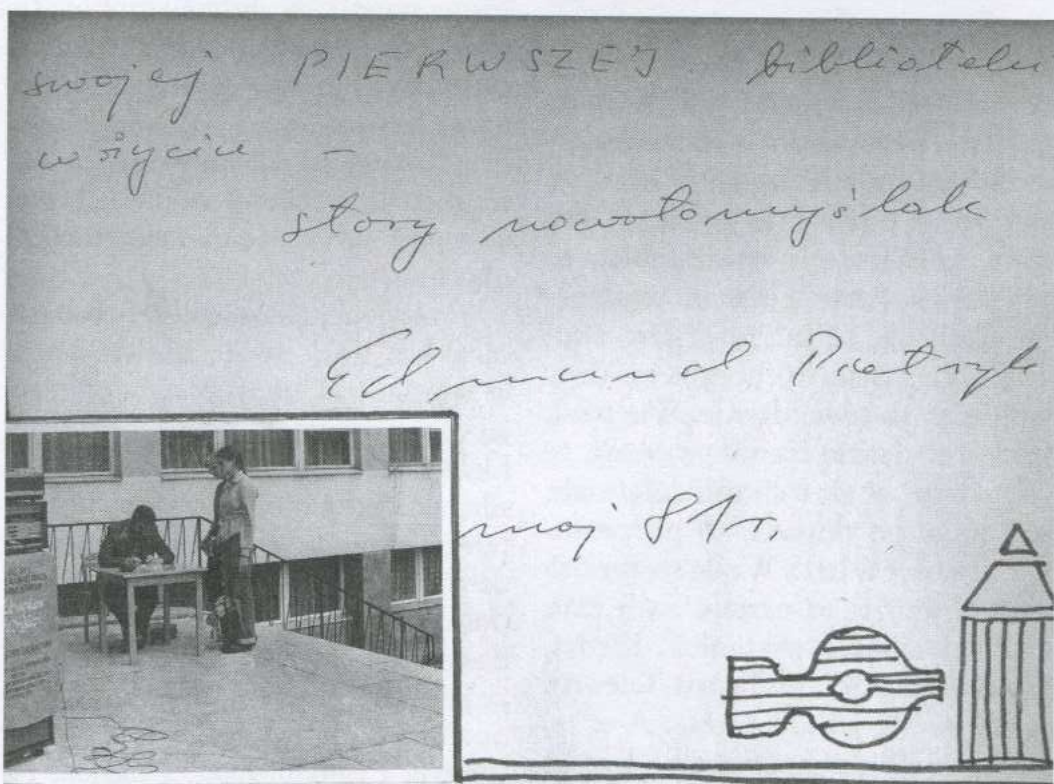 swojej PIERWSZEJ bibliotece
w życiu —
stary nowotomyślak
Edmund Pietryk
maj 81r.